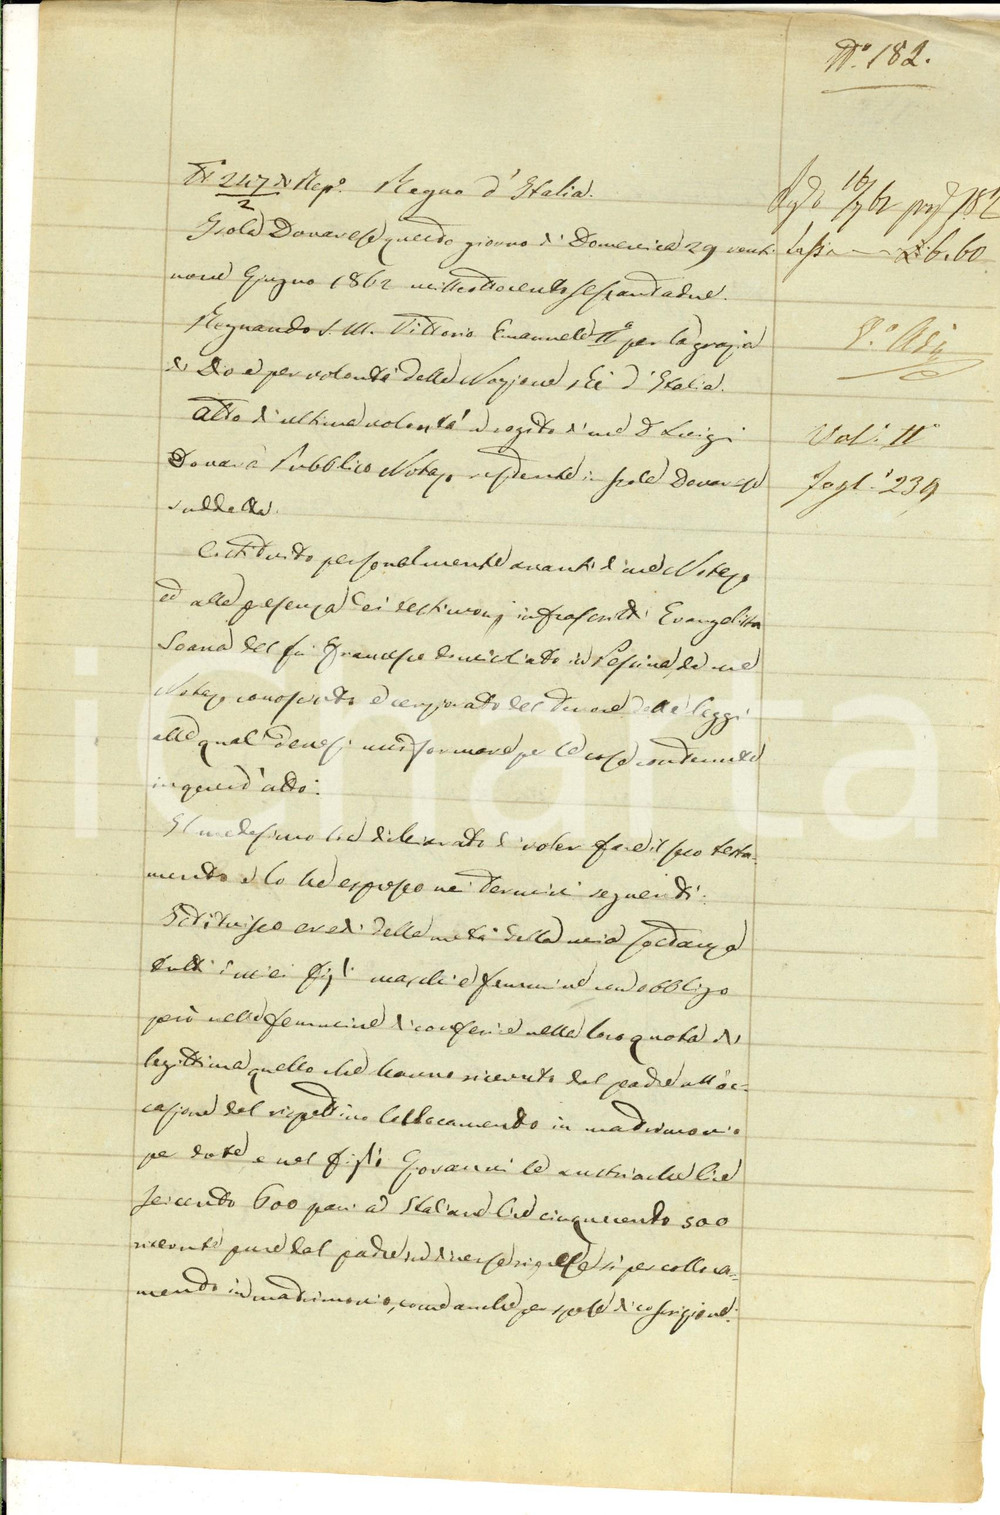 N.° 182.
N° 247 di Rep.° Regno d'Italia.
2
Isola Dovarese questo giorno di Domenica 29 venti
nove Giugno 1862 milleottocentosessantadue.
Regnando S. M. Vittorio Emanuele II° per la grazia
di Dio e per volontà della Nazione Re d'Italia.
Atto di ultima volontà a rogito di me D. Luigi
Dovara Pubblico Notajo residente in Isola Dovarese
suddetta.
Costituito personalmente avanti di me Notajo
ed alla presenza dei testimonj infrascritti Evangelista
Soana del fu Francesco domiciliato in Pessina, da me
Notajo conosciuto e cerziorato del tenore delle leggi
alle quali devesi uniformare per le cose contenute
in quest'atto:
Il medesimo ha dichiarato di voler fare il suo testa-
mento e lo ha espresso nei termini seguenti:
Istituisco eredi della metà della mia sostanza
tutti i miei figli maschi e femmine con obbligo
però nelle femmine di conferire nella loro quota di
legittima quello che hanno ricevuto dal padre all'oc-
casione del rispettivo collocamento in matrimonio
per dote e nel figlio Giovanni le austriache lire
seicento 600 pari ad Italiane lire cinquecento 500
ricevute pure dal padre in diverse riprese sì per colloca-
mento in matrimonio, come anche per spese di coscrizione.
16/7 62 182
Tassa — £ 6.60
Vol.° II°
Fogl.° 239